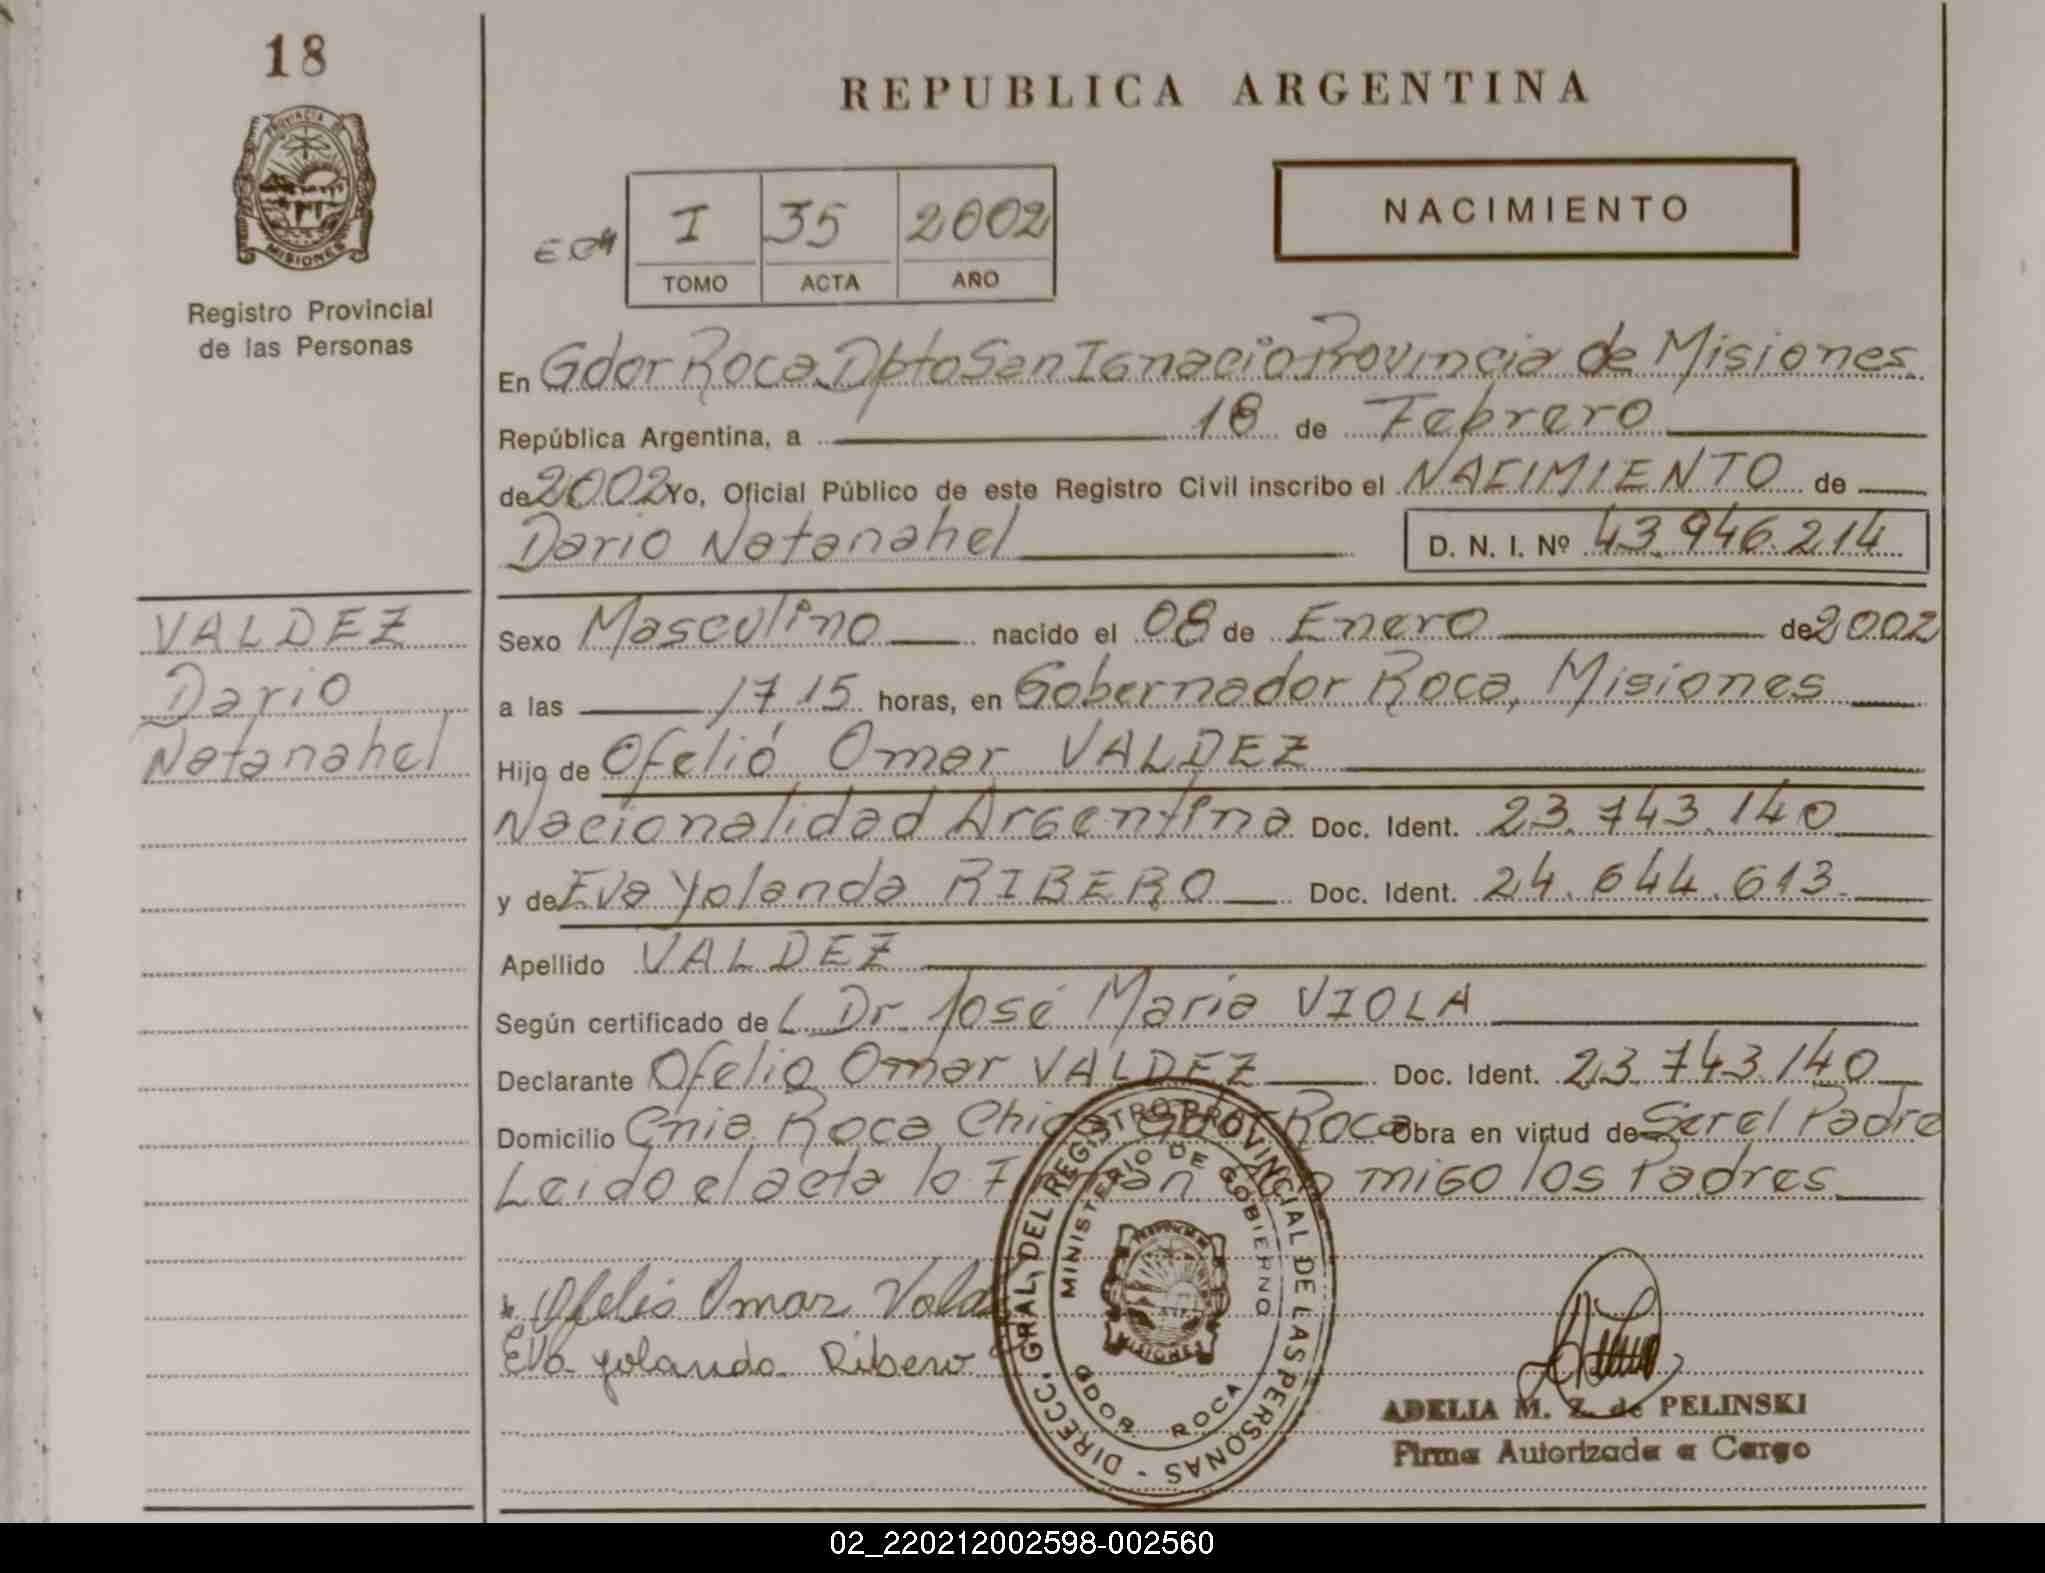 18
PROVINCIA DE
MISIONES
Registro Provincial
de las Personas
REPUBLICA ARGENTINA
I 35 2002
TOMO ACTA AÑO
NACIMIENTO
En Gdor Roca Dpto San Ignacio Provincia de Misiones
República Argentina, a 18 de Febrero
de 2002 Yo, Oficial Público de este Registro Civil inscribo el NACIMIENTO de
Dario Natanahel D. N. I. Nº 43.946.214
VALDEZ
Dario
Natanahel
Sexo Masculino nacido el 08 de Enero de 2002
a las 17 15 horas, en Gobernador Roca, Misiones
Hijo de Ofelió Omar VALDEZ
Nacionalidad Argentina Doc. Ident. 23.743.140
y de Eva Yolanda RIBERO Doc. Ident. 24.644.613.
Apellido VALDEZ
Según certificado de L Dr. José Maria VIOLA
Declarante Ofelio Omar VALDEZ Doc. Ident. 23.743.140
Domicilio Cnia Roca Chica Gdor Roca Obra en virtud de Ser el Padre
Leido el acta lo Firman con migo los Padres
Ofelio Omar Valdez
Eva yolanda Ribero
DIRECC. GRAL. DEL REGISTRO PROVINCIAL DE LAS PERSONAS -
MINISTERIO DE GOBIERNO
MISIONES
GDOR. ROCA
ADELIA M. Z. de PELINSKI
Firma Autorizada a Cargo
02_220212002598-002560